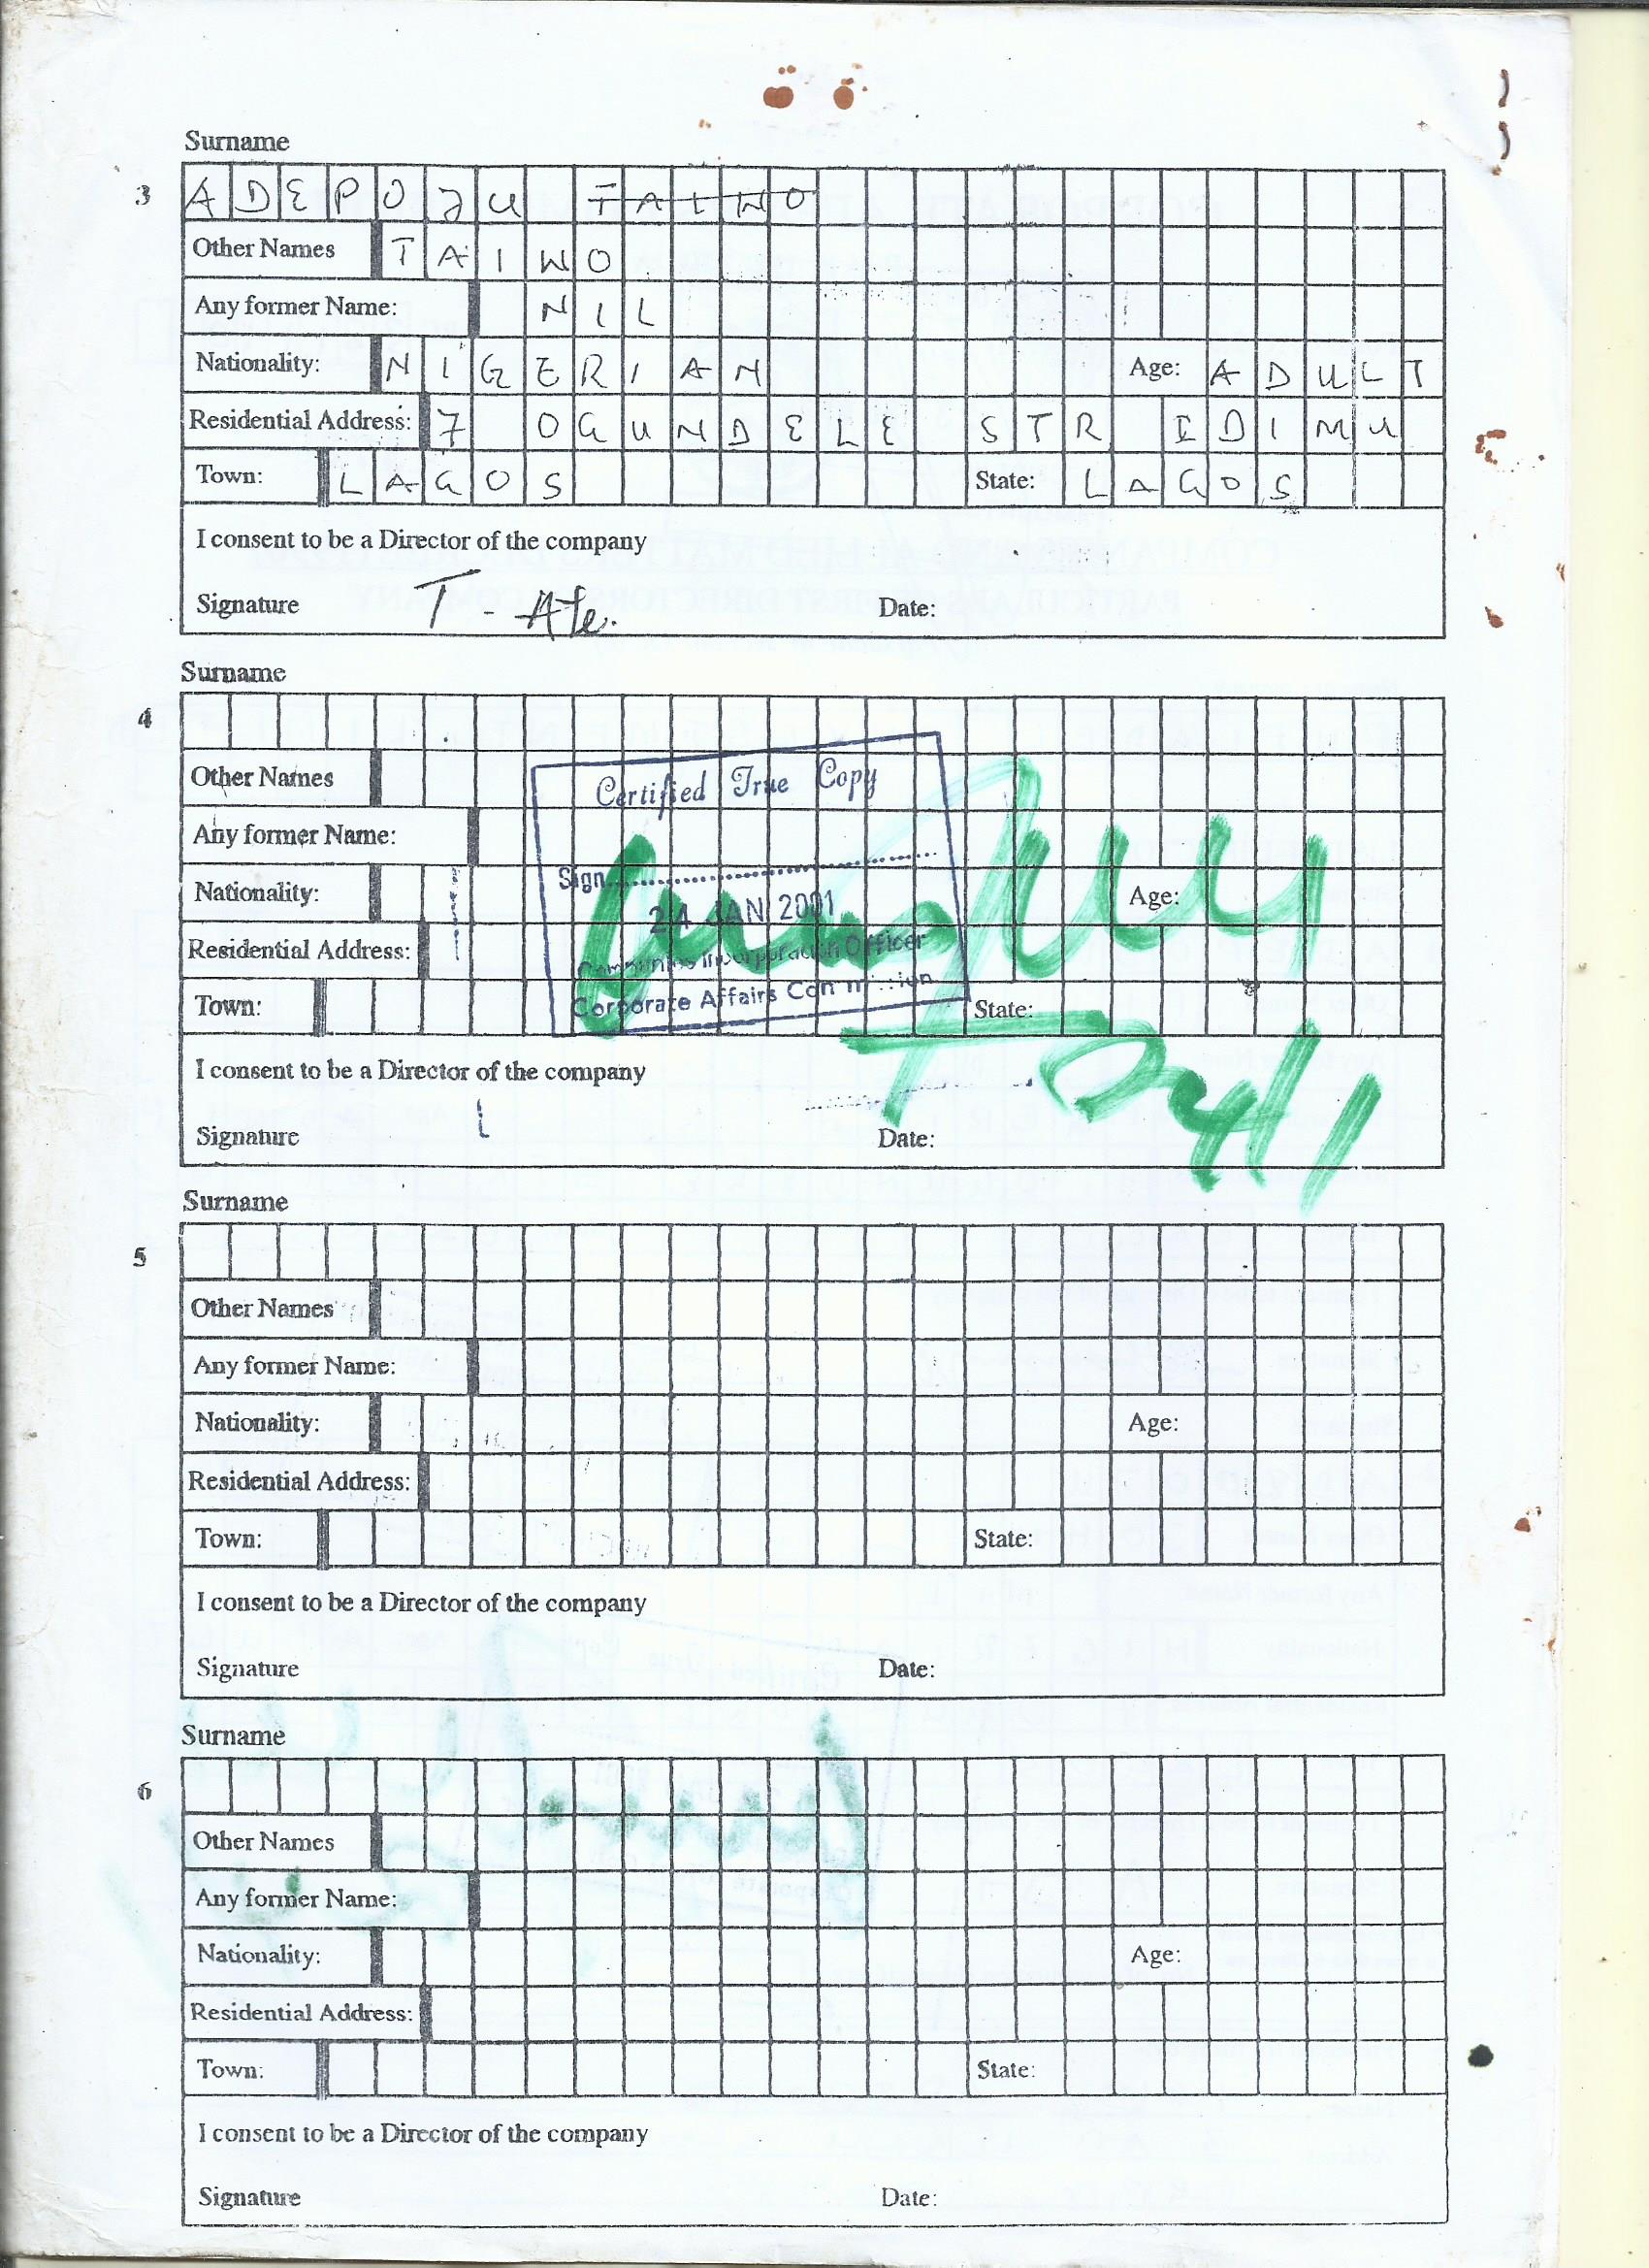 Surname
3 ADEPOJU TAIWO
Other Names TAIWO
Any former Name: NIL
Nationality: NIGERIAN Age: ADULT
Residential Address: 7 OGUNDELE STR IDIMU
Town: LAGOS State: LAGOS
I consent to be a Director of the company
Signature T - Ade. Date:
Surname
4
Other Names
Any former Name:
Nationality: Age:
Residential Address:
Town: State:
Certified True Copy
Sign
24 JAN 2001
Companies Incorporation Officer
Corporate Affairs Commission
I consent to be a Director of the company
Signature Date:
Surname
5
Other Names
Any former Name:
Nationality: Age:
Residential Address:
Town: State:
I consent to be a Director of the company
Signature Date:
Surname
6
Other Names
Any former Name:
Nationality: Age:
Residential Address:
Town: State:
I consent to be a Director of the company
Signature Date: